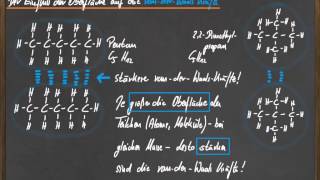 Der Einfluss der Oberfläche auf die van-der-Waals Kräfte
Pentan
C5H12
2,2-Dimethyl-
propan
C5H12
stärkere van-der-Waals-Kräfte!
Je größer die Oberfläche der
Teilchen (Atome, Moleküle) - bei
gleicher Masse - desto stärker
sind die van-der-Waals Kräfte!